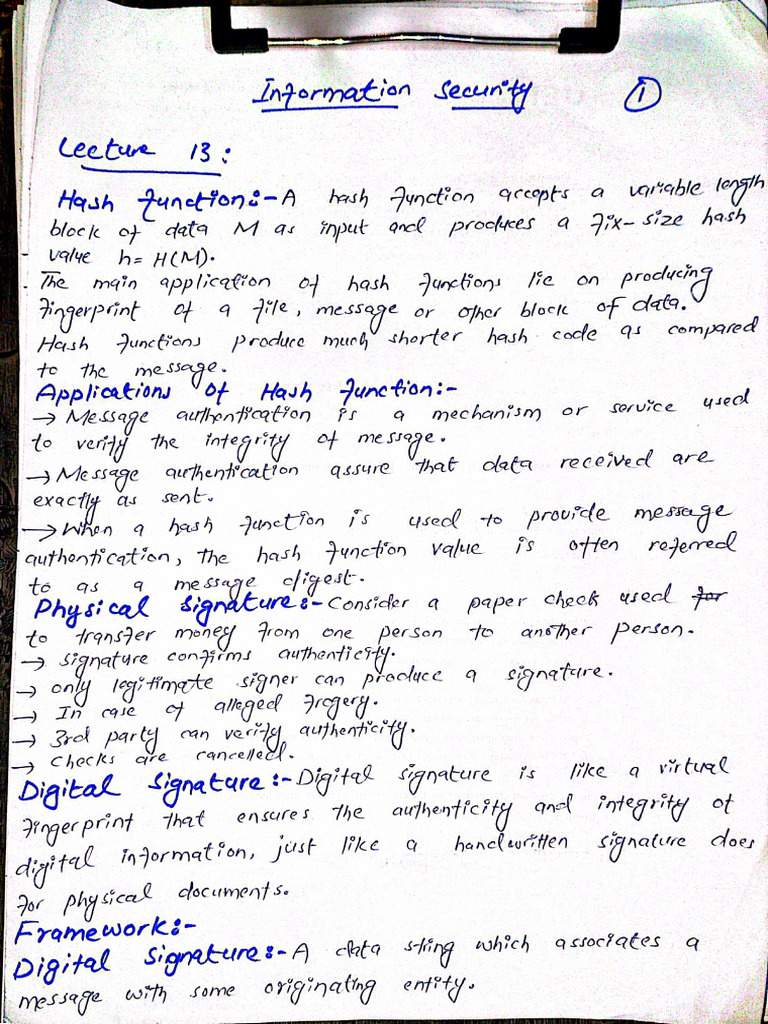 Information Security ①
Lecture 13:
Hash Function:- A hash function accepts a variable length
block of data M as input and produces a fix-size hash
value h= H(M).
The main application of hash functions lie on producing
fingerprint of a file, message or other block of data.
Hash functions produce much shorter hash code as compared
to the message.
Applications of Hash Function:-
→ Message authentication is a mechanism or service used
to verify the integrity of message.
→ Message authentication assure that data received are
exactly as sent.
→ When a hash function is used to provide message
authentication, the hash function value is often referred
to as a message digest.
Physical Signature:- Consider a paper check used for
to transfer money from one person to another person.
→ signature confirms authenticity.
→ only legitimate signer can produce a signature.
→ In case of alleged frogery.
→ 3rd party can verify authenticity.
→ checks are cancelled.
Digital Signature:- Digital signature is like a virtual
fingerprint that ensures the authenticity and integrity of
digital information, just like a handwritten signature does
for physical documents.
Framework:-
Digital Signature:- A data string which associates a
message with some originating entity.